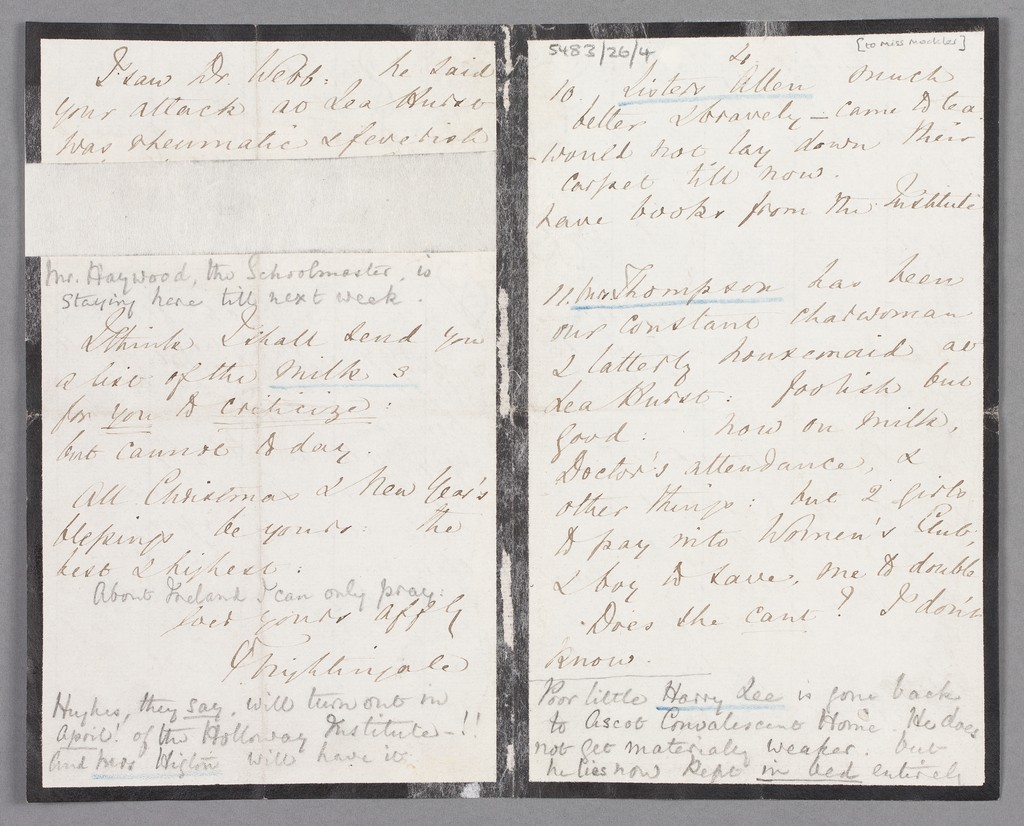 I saw Dr. Webb: he said
your attack at Lea Hurst
was rheumatic & feverish
Mr. Haywood, the Schoolmaster, is
staying here till next week.
I think I shall send you
a list of the Milks
for you to criticize:
but cannot to day.
All Christmas & New Year's
blessings be yours: the
best & highest:
About Ireland I can only pray.
ever yours affly
F Nightingale
Hughes, they say, will turn out in
April! of the Holloway Institute - !!
and Mrs Higton will have it
5483/26/4
[to Miss Mochler]
4
10. Sisters Allen much
better & bravely - came to tea
would not lay down their
carpet till now.
have books from the Institute
11. Mrs Thompson has been
our constant charwoman
& latterly housemaid at
Lea Hurst: foolish but
good: now on milk,
Doctor's attendance, &
other things: but 2 girls
to pay into Women's Club,
& boy to save, me to double
Does she cant? I don't
know.
Poor little Harry Lee is gone back
to Ascot Convalescent Home. He does
not get materially weaker. but
he lies now kept in bed entirely